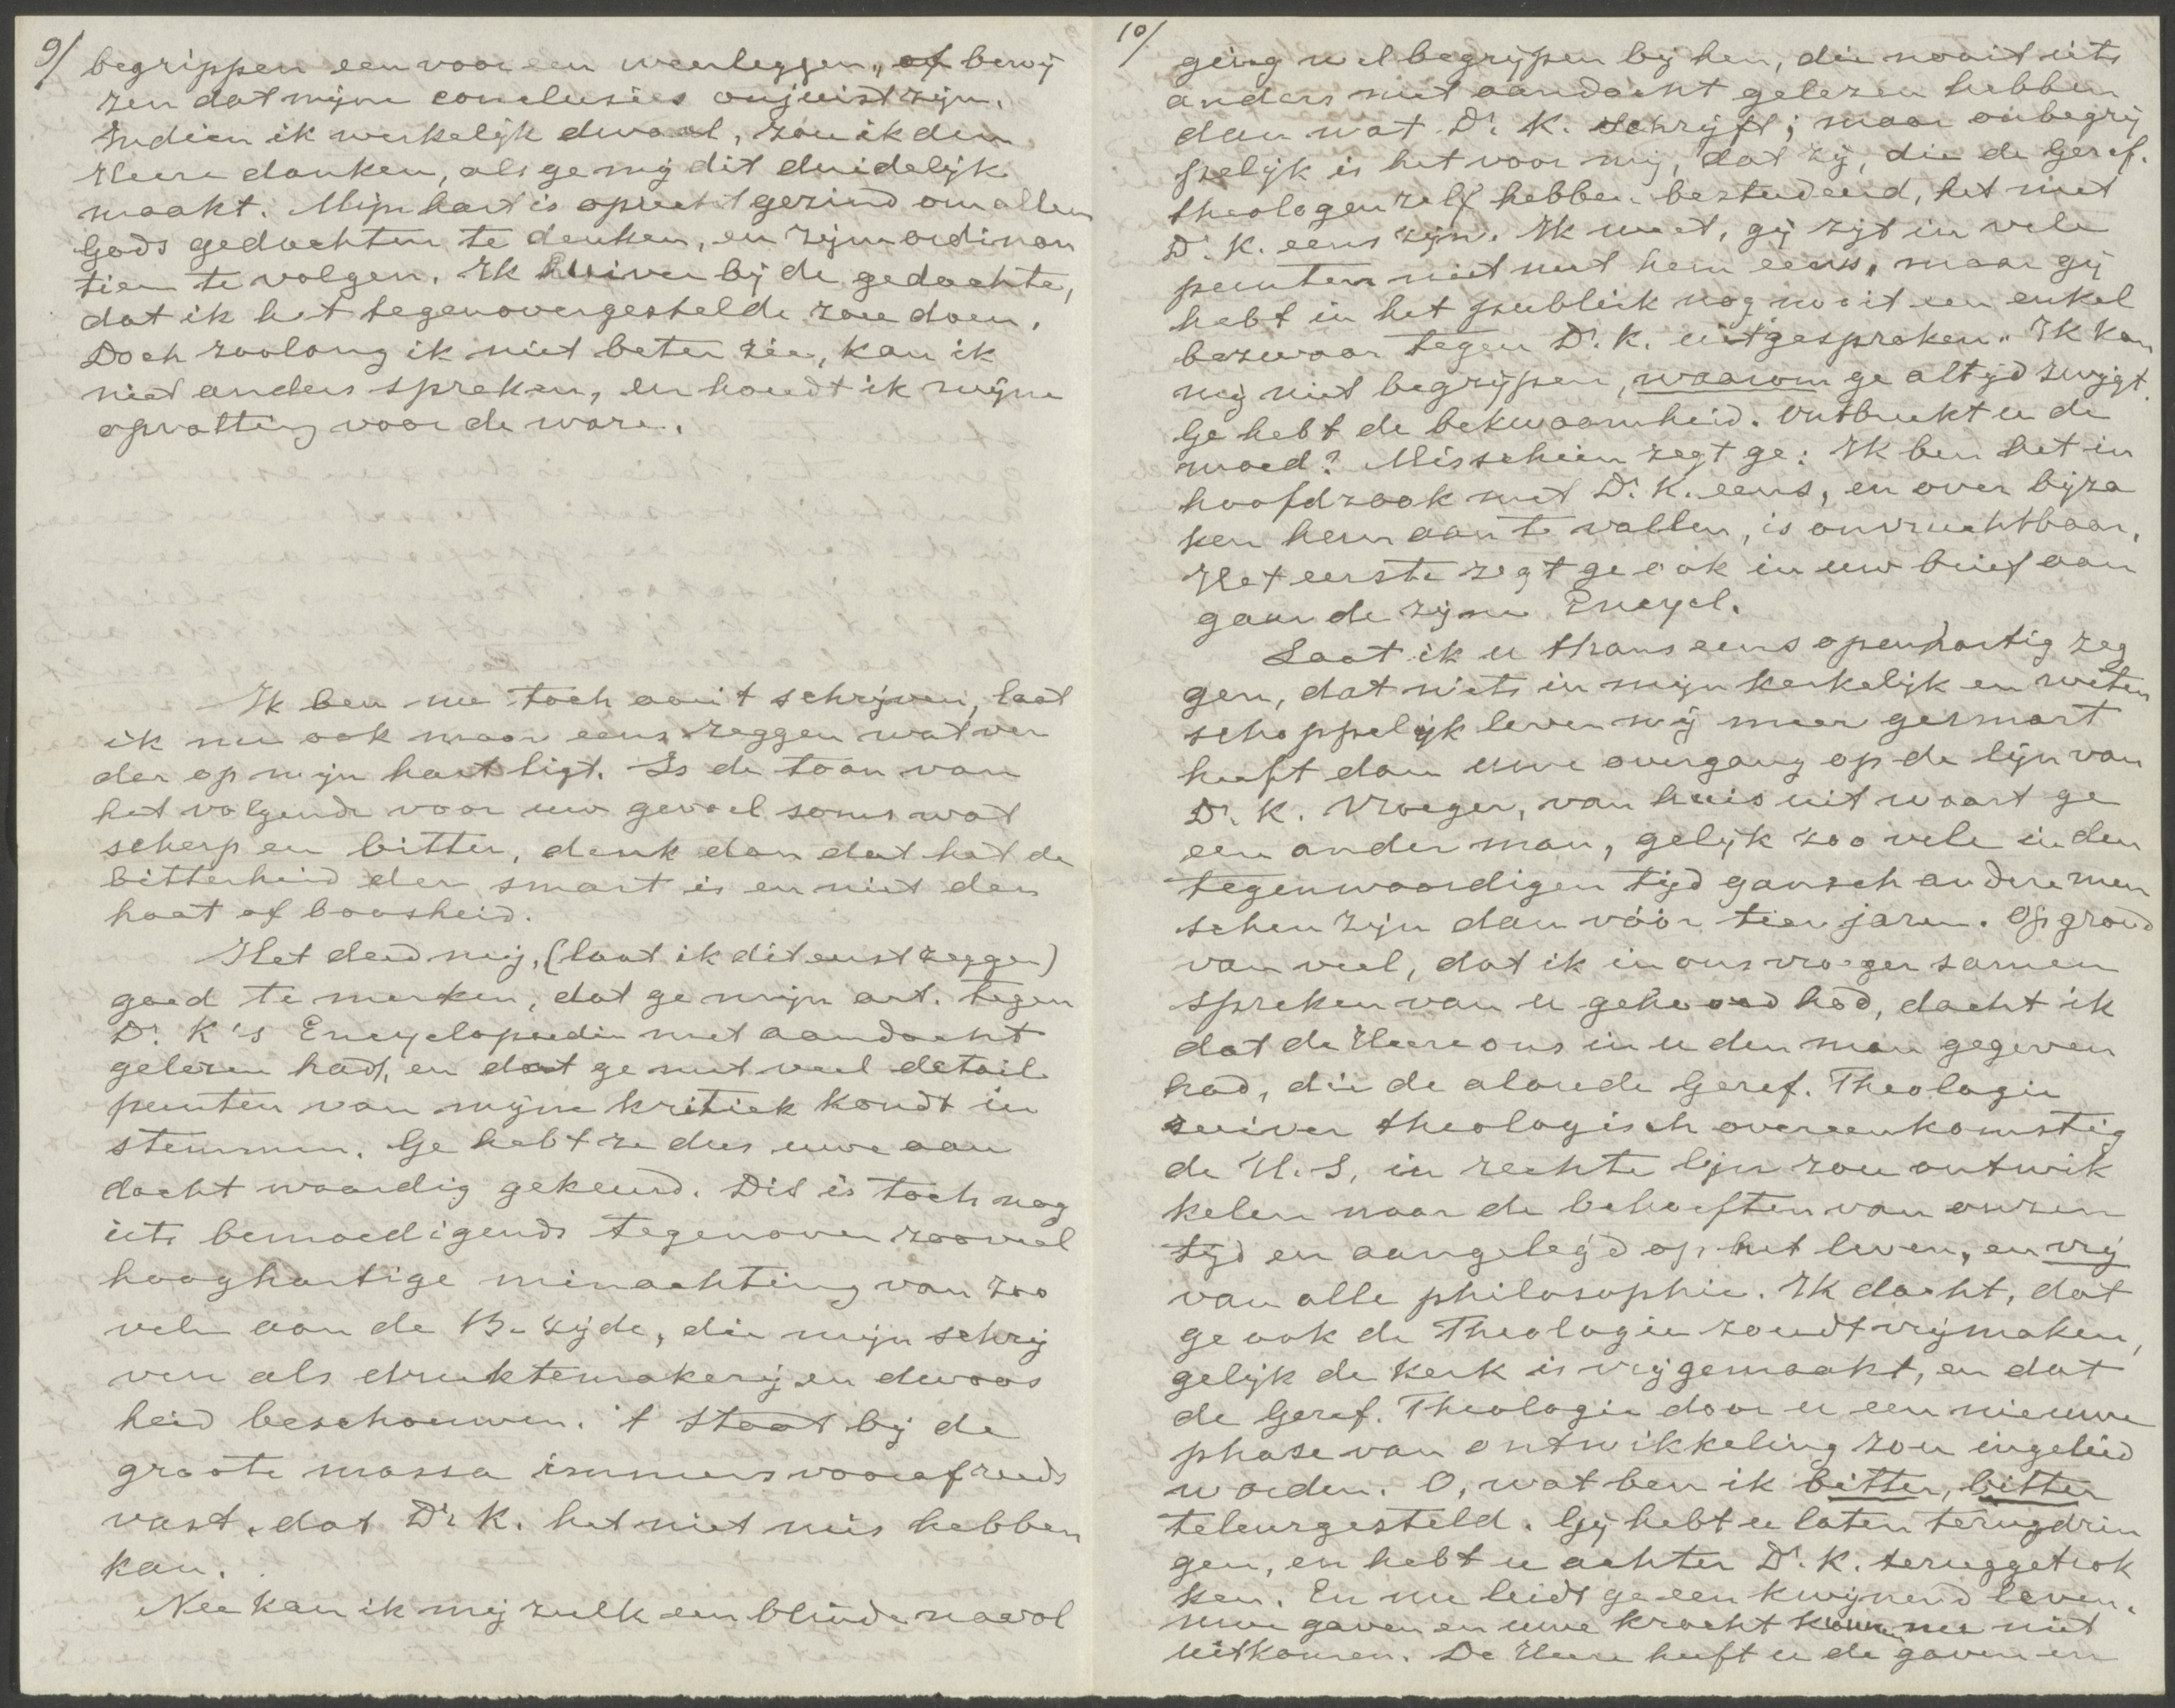 9/
begrippen een voor een weerleggen, of bewij
zen dat mijne conclusies onjuist zijn.
Indien ik werkelijk dwaal, zou ik den
Heere danken, als ge mij dit duidelijk
maakt. Mijn hart is oprecht gezind om alleen
Gods gedachten te denken, en zijne ordinan
tien te volgen. Ik huiver bij de gedachte,
dat ik het tegenovergestelde zou doen.
Doch zoolang ik niet beter zie, kan ik
niet anders spreken, en houdt ik mijne
opvatting voor de ware.
Ik ben nu toch aan 't schrijven, laat
ik nu ook maar eens zeggen wat ver
der op mijn hart ligt. Is de toon van
het volgende voor uw gevoel soms wat
scherp en bitter, denk dan dat het de
bitterheid der smart is en niet der
haat of boosheid.
Het deed mij, (laat ik dit eerst zeggen)
goed te merken, dat ge mijn art. tegen
Dr. K's Encyclopaedie met aandacht
gelezen hadt, en dat ge met veel detail
punten van mijne kritiek kondt in
stemmen. Ge hebt ze dus uwe aan
dacht waardig gekeurd. Dit is toch nog
iets bemoedigends tegenover zooveel
hooghartige minachting van zoo
velen aan de B. zijde, die mijn schrij
ven als druktemakerij en dwaas
heid beschouwen. 't Staat bij de
groote massa immers vooraf reeds
vast, dat Dr K. het niet mis hebben
kan.
Nu kan ik mij zulk een blinde navol
10/
ging wel begrijpen bij hen, die nooit iets
anders met aandacht gelezen hebben
dan wat Dr. K. schrijft; maar onbegrij
pelijk is het voor mij, dat zij, die de Geref.
theologen zelf hebben bestudeerd, het met
Dr. K. eens zijn. Ik weet, gij zijt in vele
punten niet met hem eens, maar gij
hebt in het publiek nog nooit een enkel
bezwaar tegen Dr. K. uitgesproken. Ik kan
mij niet begrijpen, waarom ge altijd zwijgt.
Ge hebt de bekwaamheid. Ontbreekt u de
moed? Misschien zegt ge: Ik ben het in
hoofdzaak met Dr. K. eens, en over bijza
ken hem aan te vallen, is onvruchtbaar.
Het eerste zegt ge ook in uw brief aan
gaande zijne Encycl.
Laat ik u thans eens openhartig zeg
gen, dat niets in mijn kerkelijk en weten
schappelijk leven mij meer gesmart
heeft dan uwe overgang op de lijn van
Dr. K. Vroeger, van huis uit waart ge
een ander man, gelijk zoo vele in den
tegenwoordigen tijd gansch andere men
schen zijn dan vóór tien jaren. Op grond
van veel, dat ik in ons vroeger samen
spreken van u gehoord had, dacht ik
dat de Heere ons in u den man gegeven
had, die de aloude Geref. Theologie
zuiver theologisch overeenkomstig
de H. S. in rechte lijn zou ontwik
kelen naar de behoeften van onzen
tijd en aangelegd op het leven, en vrij
van alle philosophie. Ik dacht, dat
ge ook de Theologie zoudt vrijmaken,
gelijk de Kerk is vrijgemaakt, en dat
de Geref. Theologie door u een nieuwe
phase van ontwikkeling zou ingeleid
worden. O, wat ben ik bitter, bitter
teleurgesteld. Gij hebt u laten terugdrin
gen, en hebt u achter Dr. K. teruggetrok
ken. En nu leidt ge een kwijnend leven.
uwe gaven en uwe kracht kunnen niet
uitkomen. De Heere heeft u de gaven en